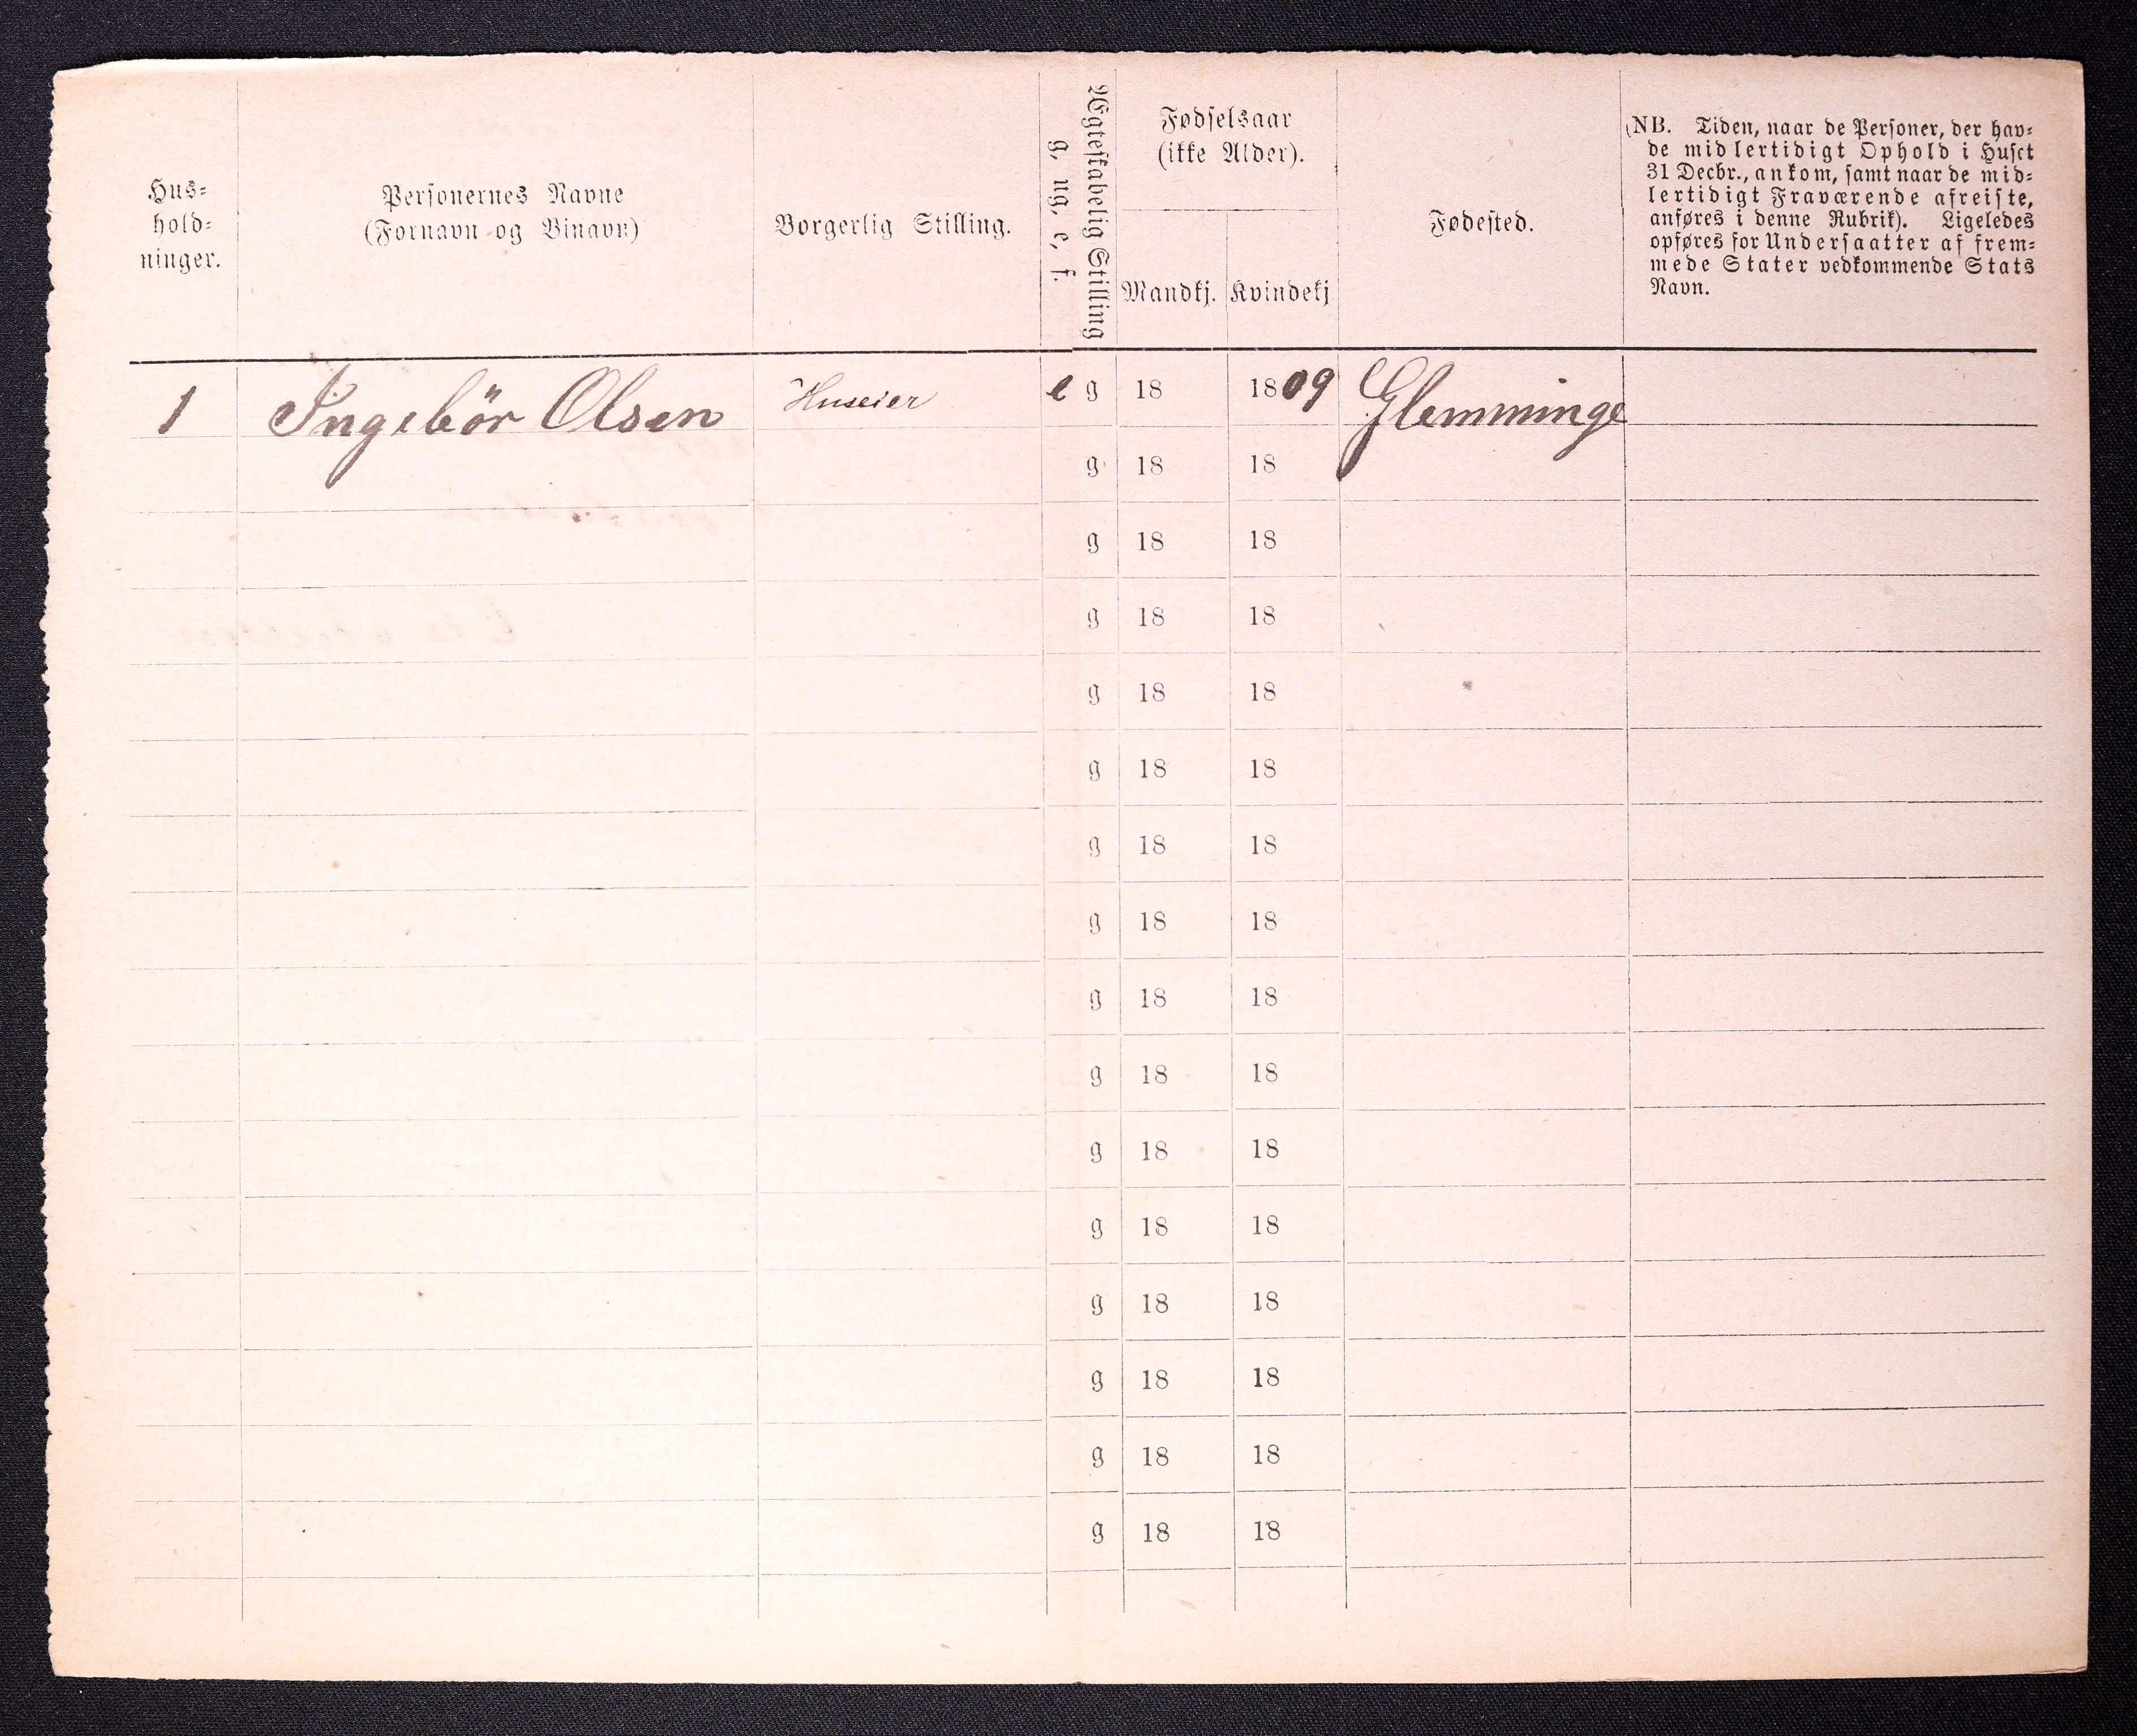 Hus=
hold=
ninger.
Personernes Navne
(Fornavn og Binavn)
Borgerlig Stilling.
Ægteskabelig Stilling
g, ug, e, f.
Fødselsaar
(ikke Alder).
Mandkj.
Kvindekj
Fødested.
(NB. Tiden, naar de Personer, der hav=
de midlertidigt Ophold i Huset
31 Decbr., ankom, samt naar de mid=
lertidigt Fraværende afreiste,
anføres i denne Rubrik). Ligeledes
opføres for Undersaatter af frem=
mede Stater vedkommende Stats
Navn.
1 Ingebör Olsen Huseier e g 18 1809 Glemminge
g 18 18
g 18 18
g 18 18
g 18 18
g 18 18
g 18 18
g 18 18
g 18 18
g 18 18
g 18 18
g 18 18
g 18 18
g 18 18
g 18 18
g 18 18